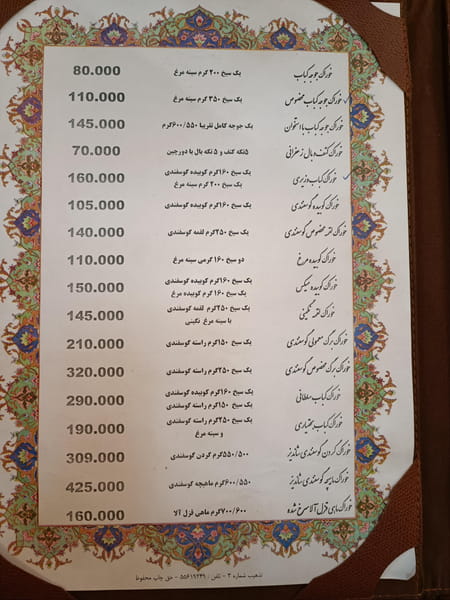 خوراک جوجه کباب یک سیخ ۲۰۰ گرم سینه مرغ 80.000
خوراک جوجه کباب مخصوص یک سیخ ۳۵۰ گرم سینه مرغ 110.000
خوراک جوجه کباب با استخوان یک جوجه کامل تقریبا ۶۰۰/۵۵۰گرم 145.000
خوراک کتف و بال زعفرانی ۵تکه کتف و ۵ تکه بال با دورچین 70.000
خوراک کباب وزیری یک سیخ ۱۶۰گرم کوبیده گوسفندی 160.000
یک سیخ ۲۰۰ گرم سینه مرغ
خوراک کوبیده گوسفندی یک سیخ ۱۶۰گرم کوبیده گوسفندی 105.000
خوراک لقمه مخصوص گوسفندی یک سیخ ۲۵۰گرم لقمه گوسفندی 140.000
خوراک کوبیده مرغ دو سیخ ۱۶۰ گرمی سینه مرغ 110.000
خوراک کوبیده میکس یک سیخ ۱۶۰گرم کوبیده گوسفندی 150.000
یک سیخ ۱۶۰ گرم کوبیده مرغ
خوراک لقمه نگینی یک سیخ ۲۵۰گرم لقمه گوسفندی 145.000
با سینه مرغ نگینی
خوراک برگ معمولی گوسفندی یک سیخ ۱۵۰گرم راسته گوسفندی 210.000
خوراک برگ مخصوص گوسفندی یک سیخ ۲۵۰گرم راسته گوسفندی 320.000
خوراک کباب سلطانی یک سیخ ۱۶۰گرم کوبیده گوسفندی 290.000
یک سیخ ۱۵۰گرم راسته گوسفندی
خوراک کباب بختیاری یک سیخ ۲۵۰گرم راسته گوسفندی 190.000
و سینه مرغ
خوراک گردن گوسفندی شاندیز ۵۵۰/۵۰۰گرم گردن گوسفندی 309.000
خوراک ماهیچه گوسفندی شاندیز ۶۰۰/۵۵۰گرم ماهیچه گوسفندی 425.000
خوراک ماهی قزل آلا سرخ شده ۷۰۰/۶۰۰گرم ماهی قزل آلا 160.000
تذهیب شماره ۲ - تلفن : ۵۵۶۱۹۲۴۹ - حق چاپ محفوظ